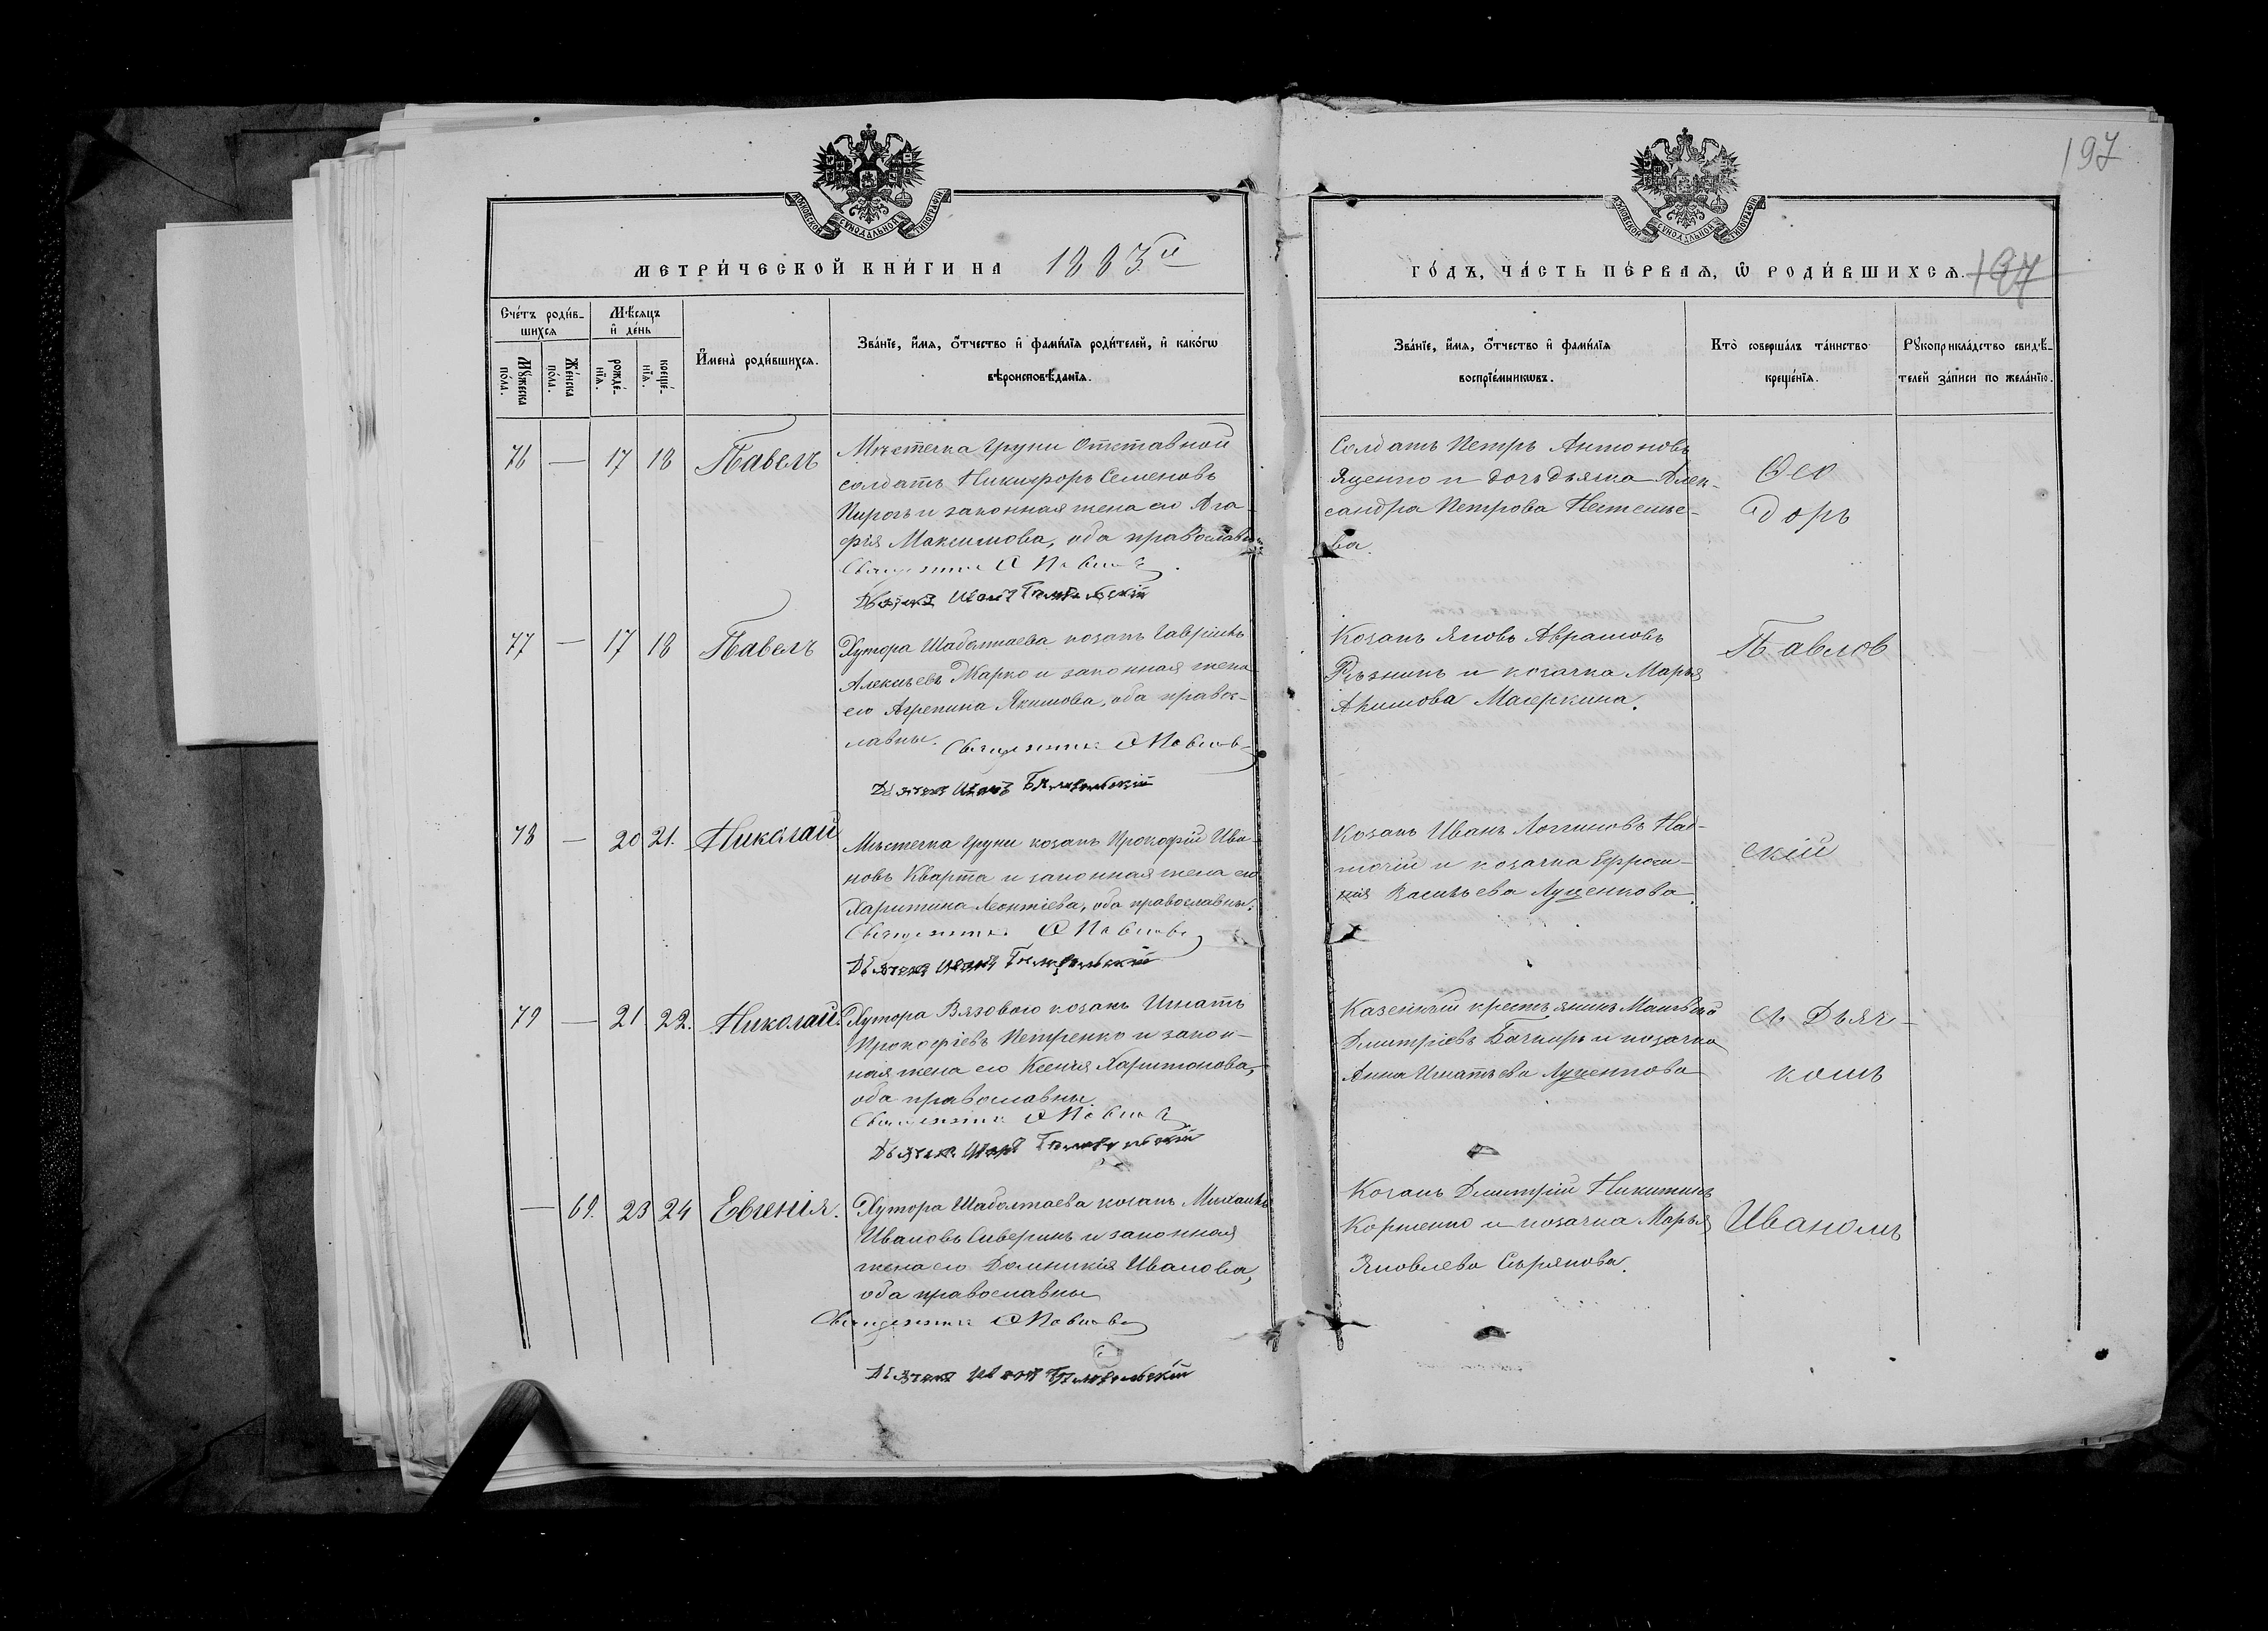 197
МЕТРИ́ЧЕСКОЙ КНИ́ГИ НА 1883й
ГО́ДЪ, ЧА́СТЬ ПЕ́РВАѦ, Ѿ РОДИ́ВШИХСѦ.
197
Сче́тъ роди́в-
шихсѧ
Мѣ́сѧцъ
и̂ де́нь
Мꙋ́жеска
по́ла.
Же́нска
по́ла.
рожде́-
нїѧ.
креще́-
нїѧ.
И̂мена̀ роди́вшихсѧ.
Зва́нїе, и̂́мѧ, ѻ҆́тчество и̂ фами́лїѧ роди́телей, и̂ како́гѡ
вѣроисповѣ́данїѧ.
Зва́нїе, и̂́мѧ, ѻ҆́тчество и̂ фами́лїѧ
воспрїе́мникѡвъ.
Кто̀ соверша́лъ та́инство
креще́нїѧ.
Рꙋкоприкла́дство свидѣ́-
телей за́писи по жела́нїю.
76 — 17 18 Павелъ
Мѣстечка Груни Отставной
солдатъ Никифоръ Семеновъ
Пирогъ и законная жена его Ага-
фія Максимова, оба православны
Священникъ Ѳ Павловъ
Дьячекъ Иванъ
Солдатъ Петръ Антоновъ
Яценко и дочь дьяка Алек-
сандра Петрова
ва.
Ѳео
доръ
77 — 17 18 Павелъ
Хутора Шаболтаева козакъ Гавріилъ
Алексѣевъ Жарко и законная жена
его Агрепина Якимова, оба правос-
лавны. Священникъ Ѳ Павловъ
Дьячекъ Иванъ
Козакъ Яковъ Авраамовъ
Рѣзникъ и козачка Марья
Акимова
Павлов
78 — 20 21. Николай
Мѣстечка Груни козакъ Прокофій Ива-
новъ Кварта и законная жена его
Харитина Леонтіева, оба православны.
Священникъ Ѳ Павловъ
Дьячекъ Иванъ
Козакъ Иванъ Логгиновъ Над-
точій и козачка Ефроси-
нія Васильева Луценкова.
скій
79 — 21 22. Николай.
Хутора Вязового козакъ Игнатъ
Прокофіевъ Петренко и закон-
ная жена его Ксенія Харитонова,
оба православны
Священникъ Ѳ Павловъ
Дьячекъ Иванъ
Казенный крестьянинъ Матвѣй
Дмитріевъ и козачка
Анна Игнатьева Луценкова
съ Дьяч-
комъ
— 69. 23 24 Евгенія.
Хутора Шаболтаева козакъ Михаилъ
Ивановъ Сиверинъ и законная
жена его Домникія Иванова,
оба православны
Священникъ Ѳ Павловъ
Дьячекъ Иванъ
Козакъ Дмитрій Никитинъ
Коршенко и козачка Марья
Яковлева Сѣрякова.
Иваномъ